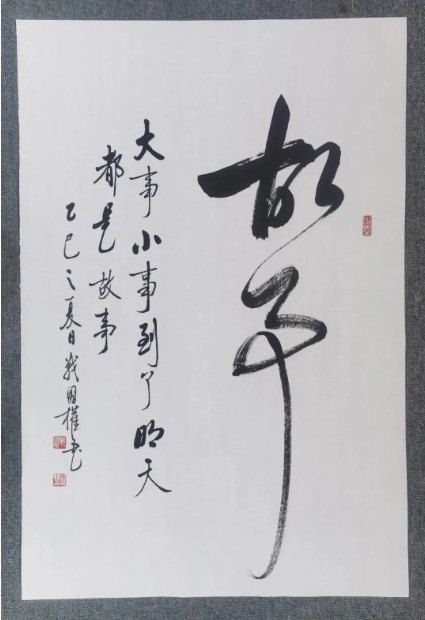 故事
大事小事到了明天
都是故事
乙巳之夏日战国权书